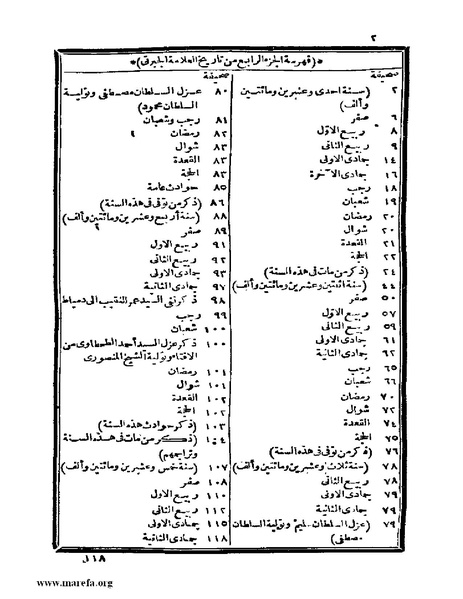 ٢
*(فهرسة الجزء الرابع من تاريخ العلامة الجبرتى)*
صحيفة
٢ (سنة احدى وعشرين ومائتين
وألف)
٦ صفر
٨ ربيع الاول
٩ ربيع الثانى
١٤ جمادى الاولى
١٦ جمادى الآخرة
١٨ رجب
١٩ شعبان
٢٠ رمضان
٢٠ شوال
٢١ القعدة
٢٢ الحجة
٢٤ (ذكر من مات فى هذه السنة)
٤٤ (سنة اثنتين وعشرين ومائتين وألف)
٥٠ صفر
٥٧ ربيع الاول
٥٩ ربيع الثانى
٦١ جمادى الاولى
٦٢ جمادى الثانية
٦٥ رجب
٦٦ شعبان
٧٠ رمضان
٧٢ شوال
٧٤ القعدة
٧٥ الحجة
٧٦ (ذكر من توفى فى هذه السنة)
٧٨ (سنة ثلاث وعشرين ومائتين وألف)
٧٨ ربيع الثانى
٧٩ جمادى الاولى
٧٩ جمادى الثانية
٧٩ (عزل السلطان سليم وتولية السلطان
مصطفى)
صحيفة
٨٠ عزل السلطان مصطفى وتولية
السلطان محمود)
٨١ رجب وشعبان
٨٢ رمضان
٨٣ شوال
٨٣ القعدة
٨٣ الحجة
٨٥ حوادث عامة
٨٦ (ذكر من توفى فى هذه السنة)
٨٨ (سنة أربع وعشرين ومائتين وألف)
٨٩ صفر
٩١ ربيع الاول
٩٢ ربيع الثانى
٩٣ جمادى الاولى
٩٧ جمادى الثانية
٩٨ ذكر نفى السيد عمر النقيب الى دمياط
٩٩ رجب
١٠٠ شعبان
١٠٠ ذكر عزل السيد أحمد الطحطاوى من
الافتاء وتولية الشيخ المنصورى
١٠١ رمضان
١٠١ شوال
١٠٢ القعدة
١٠٢ الحجة
١٠٣ (ذكر حوادث هذه السنة)
١٠٤ (ذكر من مات فى هذه السنة
وتراجمهم)
١٠٧ (سنة خمس وعشرين ومائتين وألف)
١٠٨ صفر
١١٠ ربيع الاول
١١٢ ربيع الثانى
١١٥ جمادى الاولى
١١٨ جمادى الثانية
١١٨
www.marefa.org